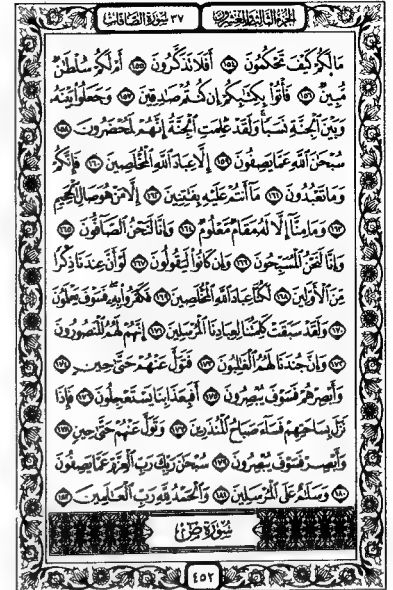 الجزء الثالث والعشرون
٣٧ سورة الصافات
مَا لَكُمْ كَيْفَ تَحْكُمُونَ ١٥٤ أَفَلَا تَذَكَّرُونَ ١٥٥ أَمْ لَكُمْ سُلْطَٰنٌ
مُّبِينٌ ١٥٦ فَأْتُوا۟ بِكِتَٰبِكُمْ إِن كُنتُمْ صَٰدِقِينَ ١٥٧ وَجَعَلُوا۟ بَيْنَهُۥ
وَبَيْنَ ٱلْجِنَّةِ نَسَبًا وَلَقَدْ عَلِمَتِ ٱلْجِنَّةُ إِنَّهُمْ لَمُحْضَرُونَ ١٥٨
سُبْحَٰنَ ٱللَّهِ عَمَّا يَصِفُونَ ١٥٩ إِلَّا عِبَادَ ٱللَّهِ ٱلْمُخْلَصِينَ ١٦٠ فَإِنَّكُمْ
وَمَا تَعْبُدُونَ ١٦١ مَآ أَنتُمْ عَلَيْهِ بِفَٰتِنِينَ ١٦٢ إِلَّا مَنْ هُوَ صَالِ ٱلْجَحِيمِ
١٦٣ وَمَا مِنَّآ إِلَّا لَهُۥ مَقَامٌ مَّعْلُومٌ ١٦٤ وَإِنَّا لَنَحْنُ ٱلصَّآفُّونَ ١٦٥
وَإِنَّا لَنَحْنُ ٱلْمُسَبِّحُونَ ١٦٦ وَإِن كَانُوا۟ لَيَقُولُونَ ١٦٧ لَوْ أَنَّ عِندَنَا ذِكْرًا
مِّنَ ٱلْأَوَّلِينَ ١٦٨ لَكُنَّا عِبَادَ ٱللَّهِ ٱلْمُخْلَصِينَ ١٦٩ فَكَفَرُوا۟ بِهِۦ فَسَوْفَ يَعْلَمُونَ
١٧٠ وَلَقَدْ سَبَقَتْ كَلِمَتُنَا لِعِبَادِنَا ٱلْمُرْسَلِينَ ١٧١ إِنَّهُمْ لَهُمُ ٱلْمَنصُورُونَ
١٧٢ وَإِنَّ جُندَنَا لَهُمُ ٱلْغَٰلِبُونَ ١٧٣ فَتَوَلَّ عَنْهُمْ حَتَّىٰ حِينٍ ١٧٤
وَأَبْصِرْهُمْ فَسَوْفَ يُبْصِرُونَ ١٧٥ أَفَبِعَذَابِنَا يَسْتَعْجِلُونَ ١٧٦ فَإِذَا
نَزَلَ بِسَاحَتِهِمْ فَسَآءَ صَبَاحُ ٱلْمُنذَرِينَ ١٧٧ وَتَوَلَّ عَنْهُمْ حَتَّىٰ حِينٍ ١٧٨
وَأَبْصِرْ فَسَوْفَ يُبْصِرُونَ ١٧٩ سُبْحَٰنَ رَبِّكَ رَبِّ ٱلْعِزَّةِ عَمَّا يَصِفُونَ
١٨٠ وَسَلَٰمٌ عَلَى ٱلْمُرْسَلِينَ ١٨١ وَٱلْحَمْدُ لِلَّهِ رَبِّ ٱلْعَٰلَمِينَ ١٨٢
سُورَةُ صٓ
٤٥٢